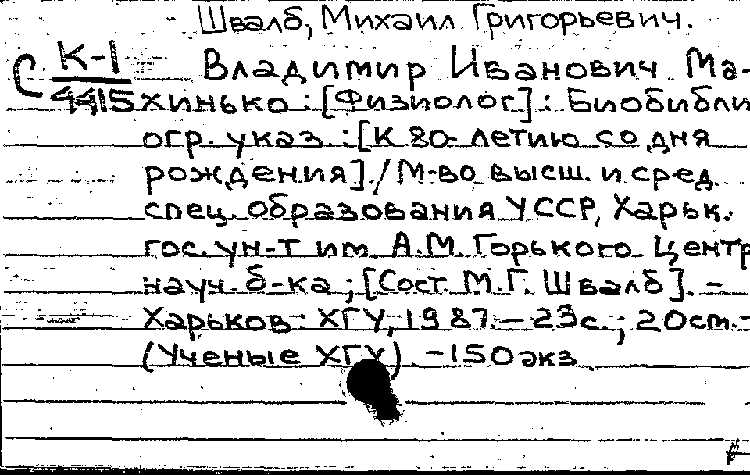 Швалб, Михаил Григорьевич.
С К-1 Владимир Иванович Ма-
4415 хинько : [Физиолог] : Биобибли
огр. указ. : [К 80-летию со дня
рождения]. / М-во высш. и сред.
спец. образования УССР, Харьк.
гос. ун-т им. А.М. Горького. Центр.
науч. б-ка ; [Сост. М.Г. Швалб]. -
Харьков : ХГУ, 1987. - 23с. ; 20см. -
(Ученые ХГУ). - 150 экз.